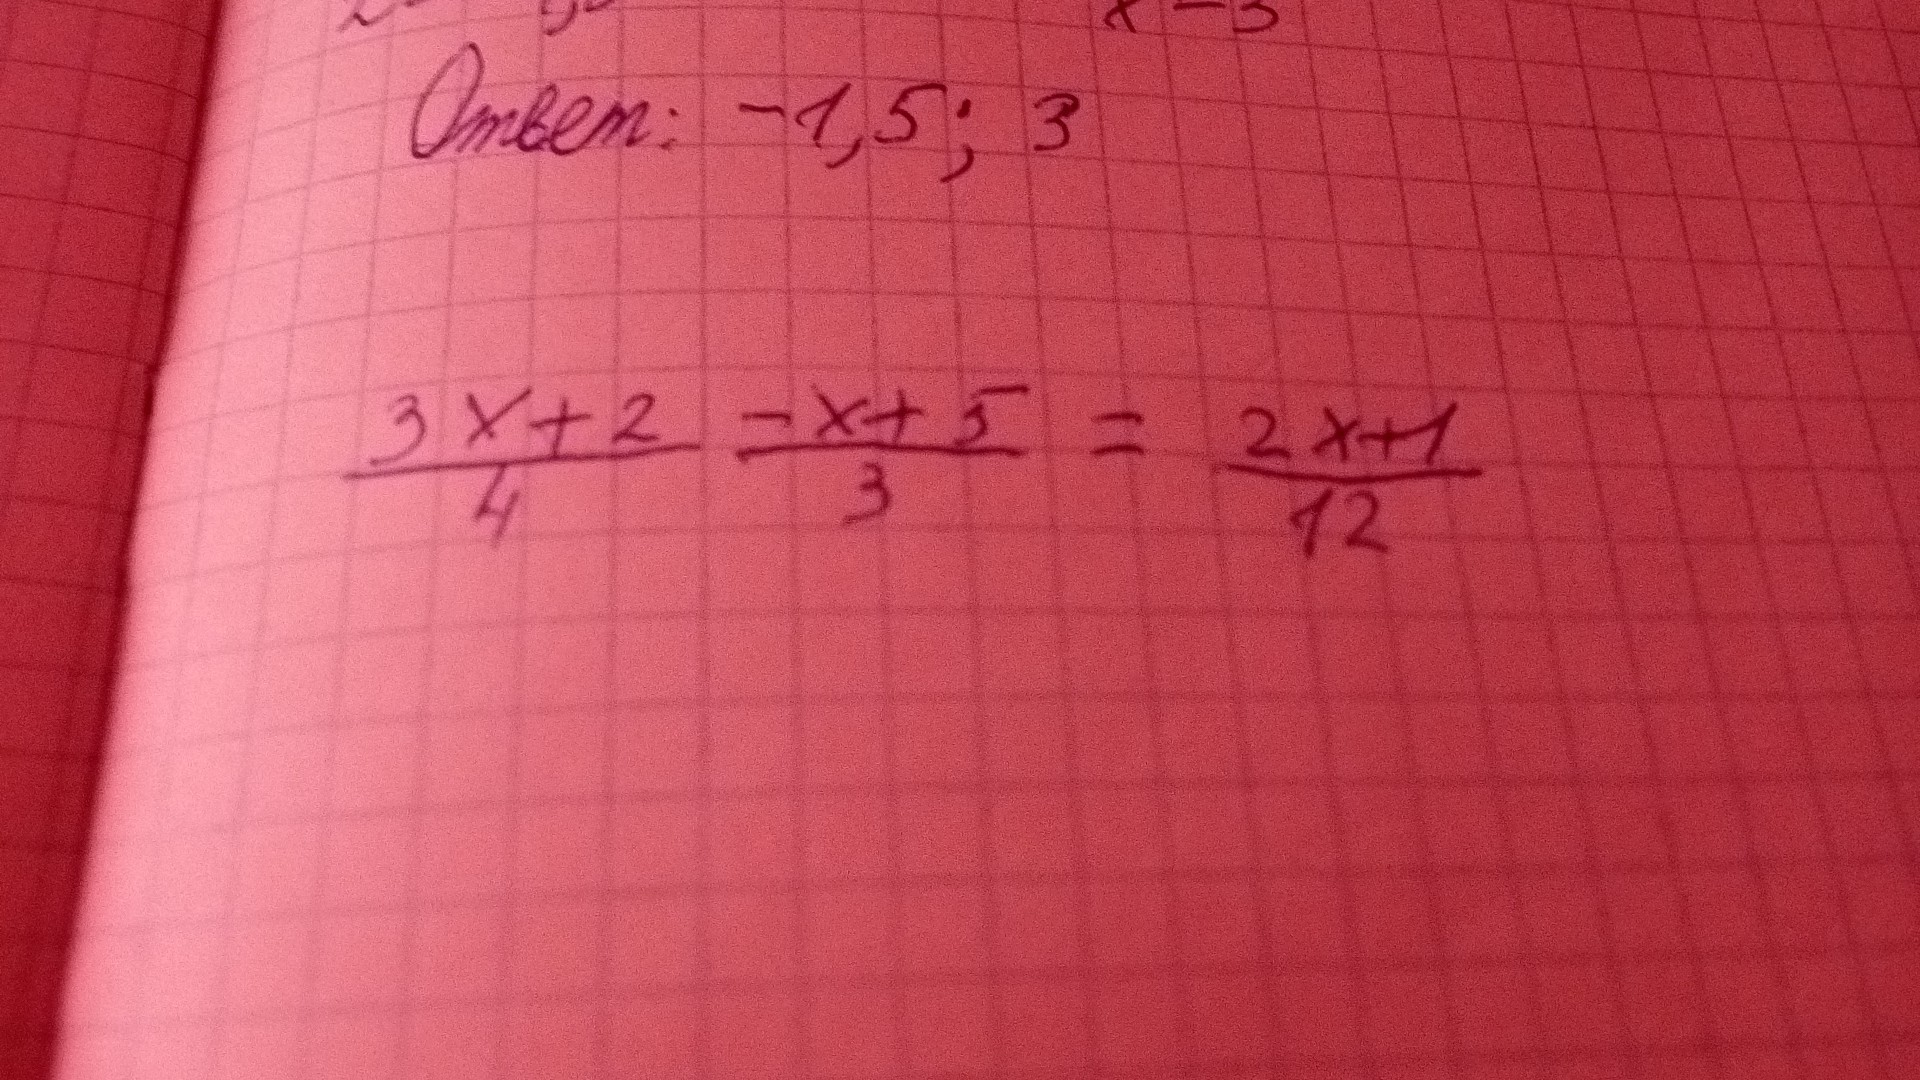 x=3
Ответ: -1,5; 3
3x+2 -x+5 = 2x+1
4 3 12